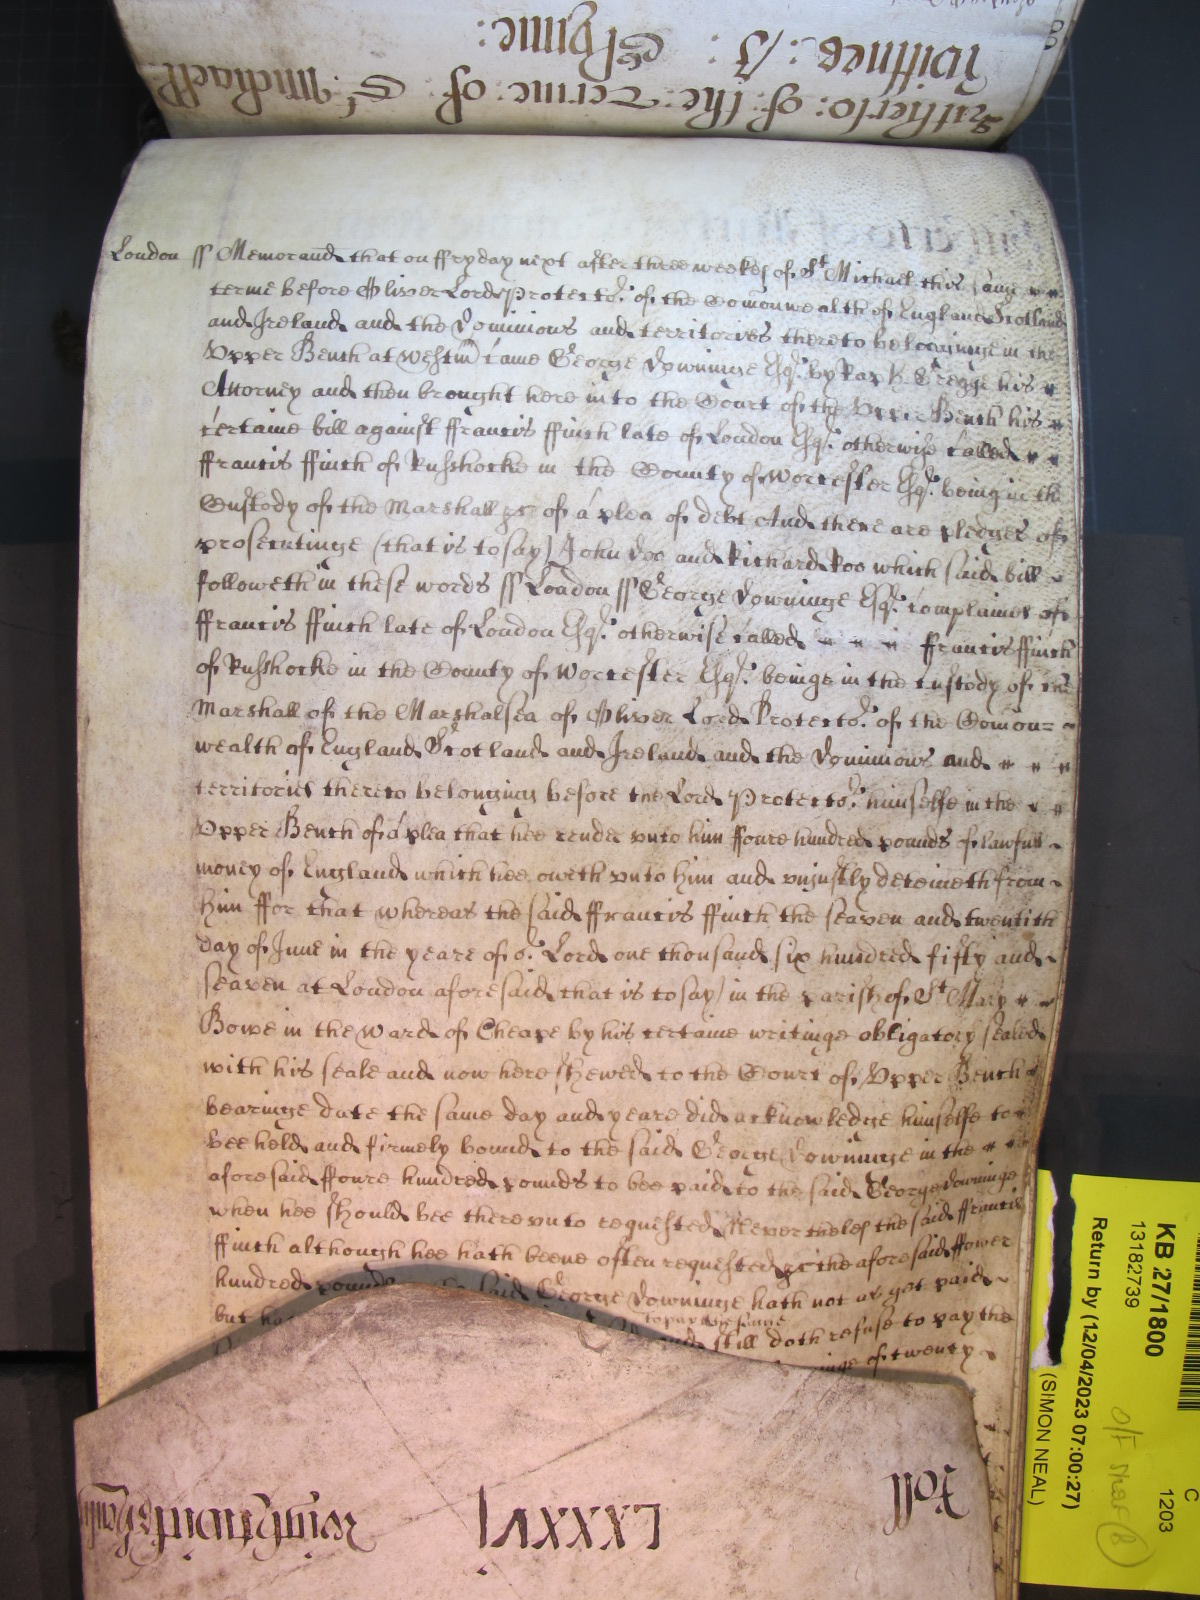 Hitherto: of the: Terme: of St: Michaell
Wittnes: J: Glynne:
London ss Memorand that on ffryday next after three weekes of St Michael this same
terme before Oliver Lord Protector of the Comonwealth of England Scotland
and Ireland and the Dominions and territories thereto belonginge in the
Upper Bench at Westm came George Downinge Esqr by Gregge his
Attorney and then brought here into the Court of the Upper Bench his
certaine bill against ffrancis ffinch late of London Esqr otherwise called
ffrancis ffinch of Rushocke in the County of Worcester Esqr being in the
Custody of the Marshall &c of a plea of debt And there are pledges of
prosecutinge (that is to say) John Doo and Richard Roo which said bill
followeth in these words ss London ss George Downinge Esqr complaines of
ffrancis ffinch late of London Esqr otherwise called ffrancis ffinch
of Rushocke in the County of Worcester Esqr beinge in the custody of the
Marshall of the Marshalsea of Oliver Lord Protector of the Comon=
wealth of England Scotland and Ireland and the Dominions and
territories thereto belonging before the Lord Protector himselfe in the
Upper Bench of a plea that hee render unto him ffoure hundred pounds of lawfull
money of England which hee oweth unto him and unjustly deteineth from
him ffor that whereas the said ffrancis ffinch the seaven and twentith
day of June in the yeare of or Lord one thousand six hundred fifty and
seaven at London aforesaid that is to say in the parish of St Mary
Bowe in the Ward of Cheape by his certaine writinge obligatory sealed
with his seale and now here shewed to the Court of Upper Bench
bearinge date the same day and yeare did acknowledge himselfe to
bee held and firmely bound to the said George Downinge in the
aforesaid ffoure hundred pounds to bee paid to the said George Downinge
when hee should bee thereunto requested Neverthelesse the said ffrancis
ffinch although hee hath beene often requested &c the aforesaid ffower
hundred pounds said George Downinge hath not as yet paid
but to pay the same
and still doth refuse to pay the
of twenty
Roll
LXXXVI
KB 27/1800
13182739
Return by (12/04/2023 07:00:27)
(SIMON NEAL)
C
1203